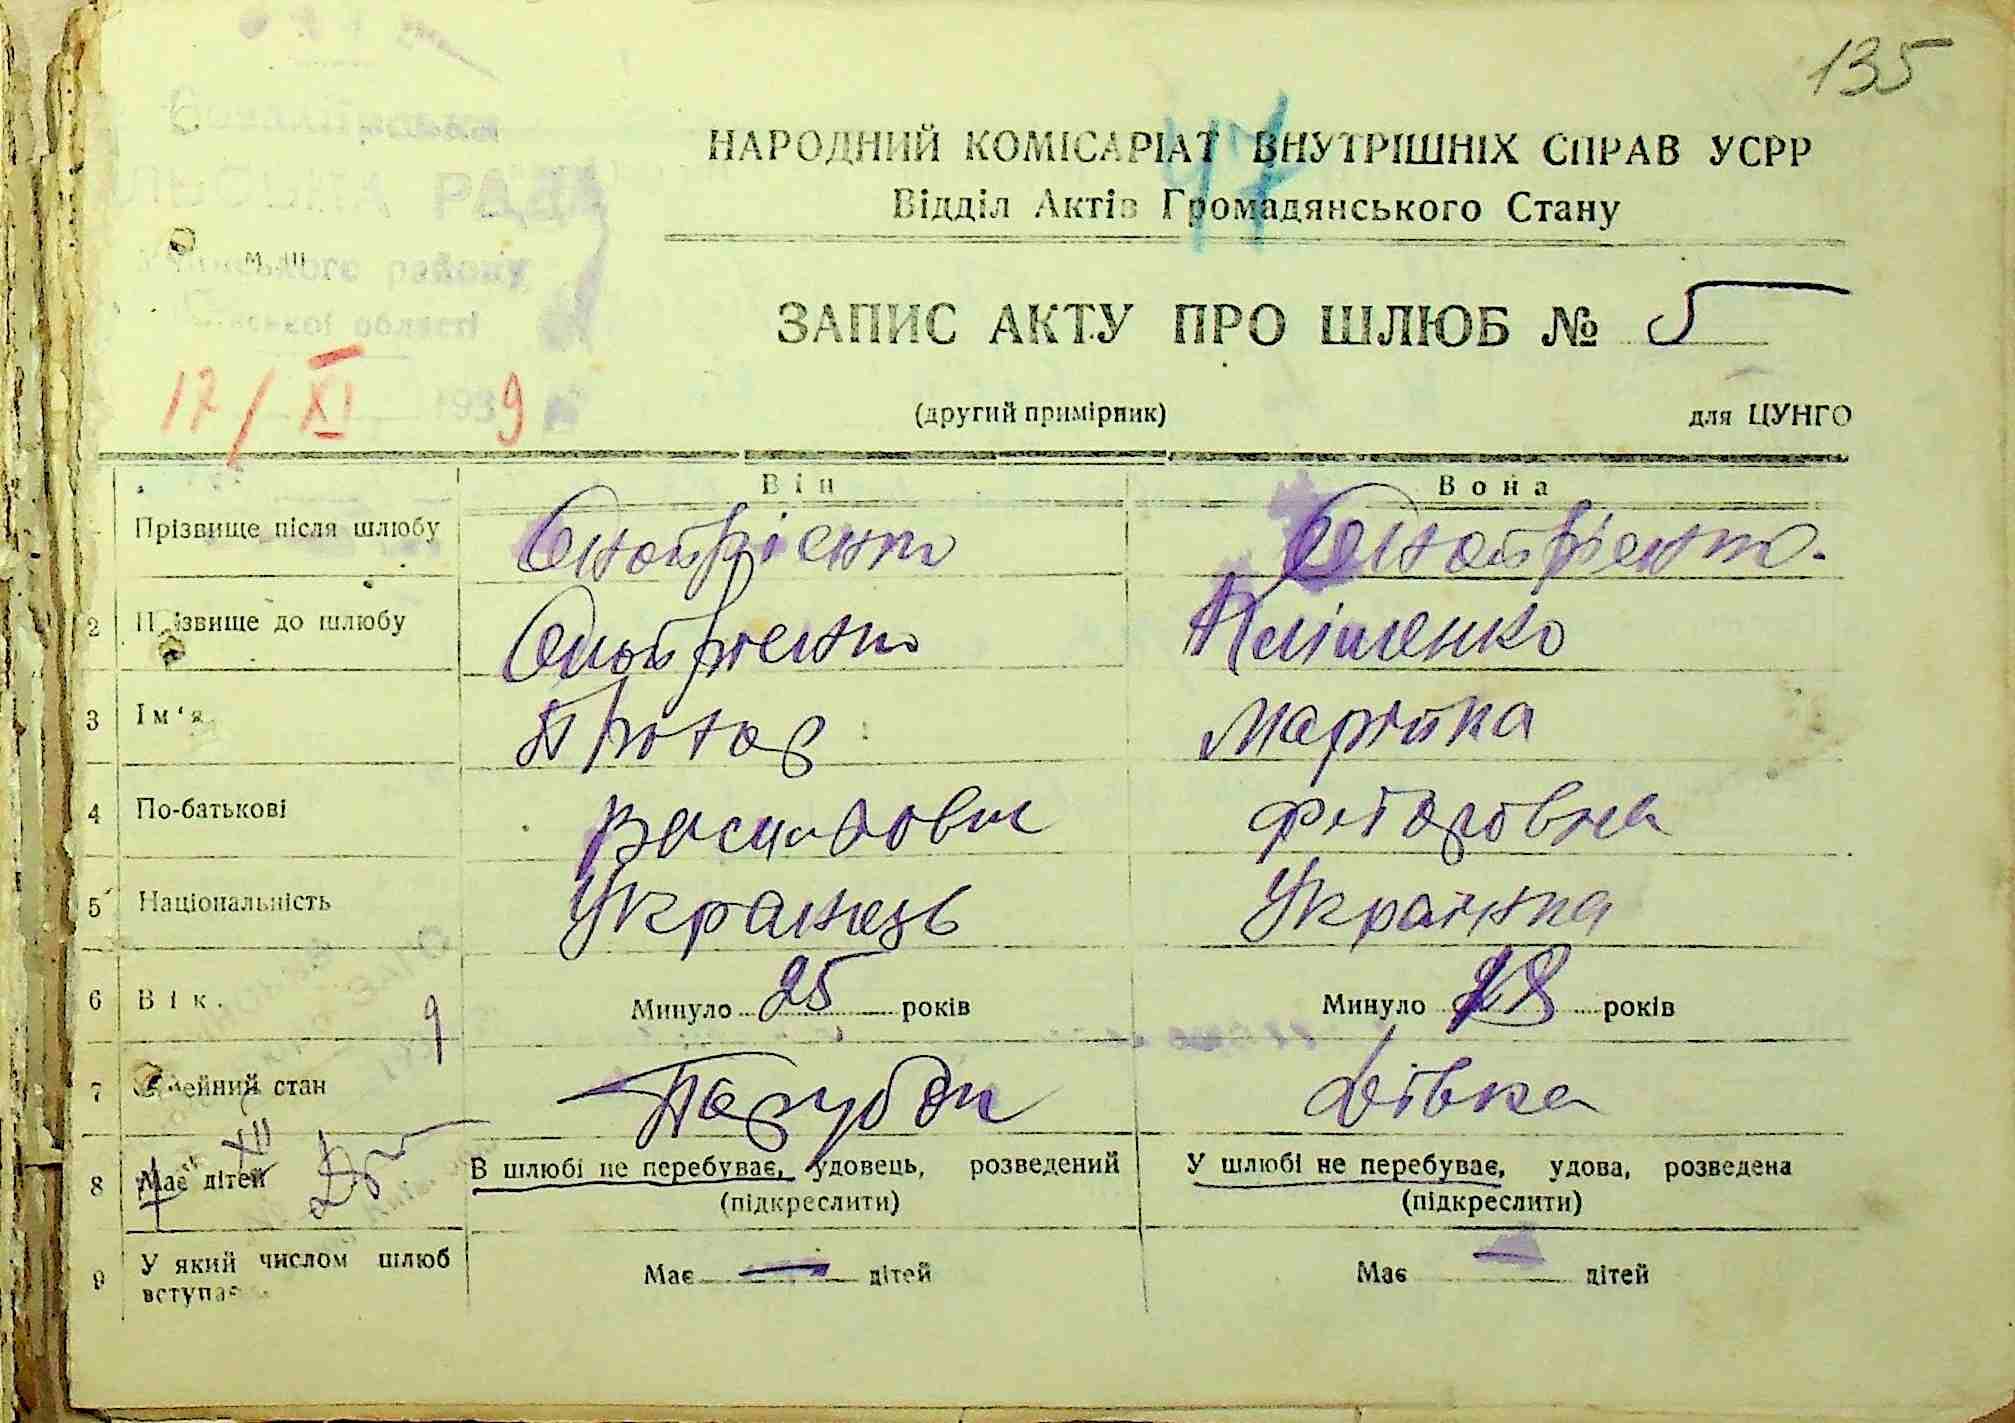 135
47
НАРОДНИЙ КОМІСАРІАТ ВНУТРІШНІХ СПРАВ УСРР
Відділ Актів Громадянського Стану
РАДА
району
області
17/XI 1939
ЗАПИС АКТУ ПРО ШЛЮБ № 5
(другий примірник) для ЦУНГО
Він Вона
Прізвище після шлюбу Онопрієнко Онопрієнко.
2 Прізвище до шлюбу Онопрієнко Кліменко
3 Ім'я Марійка
4 По-батькові Федоровна
5 Національність Українець Українка
6 Вік. Минуло 25 років Минуло 28 років
9
7 Сімейний стан Парубок Дівка
XII
8 Має дітей В шлюбі не перебуває, удовець, розведений У шлюбі не перебуває, удова, розведена
(підкреслити) (підкреслити)
9 У який числом шлюб вступає Має — дітей Має — дітей